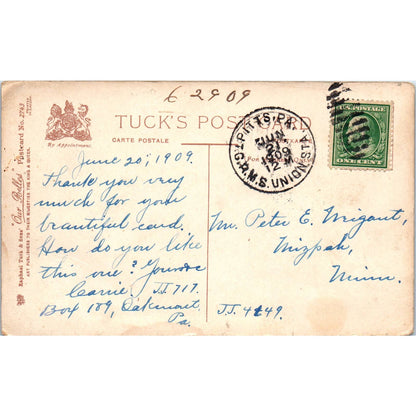 6 29 09
TUCK'S POST CARD
CARTE POSTALE
By Appointment.
Raphael Tuck & Sons' "Our Belles" Postcard No. 2743
ART PUBLISHERS TO THEIR MAJESTIES THE KING & QUEEN.
PITTS. PA.
JUN
1909
12 M
G.P.R.M.S. UNION STA
U.S. POSTAGE
ONE CENT
June 20, 1909.
Thank you very
much for your
beautiful card,
How do you like
this one?
Carrie JJ 717.
Box 109, Oakmont,
Pa.
Mr. Peter E.
Mizpah,
Minn.
JJ. 4449.